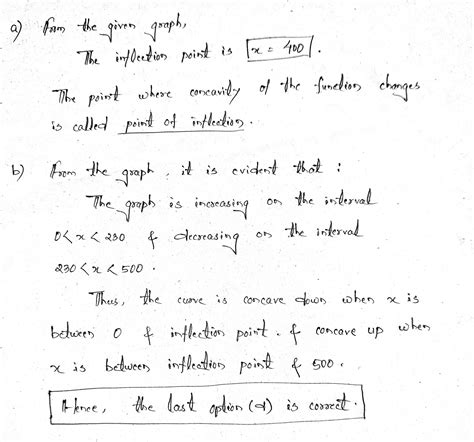 a) From the given graph,
The inflection point is x = 400.
The point where concavity of the function changes
is called point of inflection.
b) From the graph, it is evident that :
The graph is increasing on the interval
0 < x < 230 & decreasing on the interval
230 < x < 500.
Thus, the curve is concave down when x is
between 0 & inflection point. & concave up when
x is between inflection point & 500.
Hence, the last option (d) is correct.